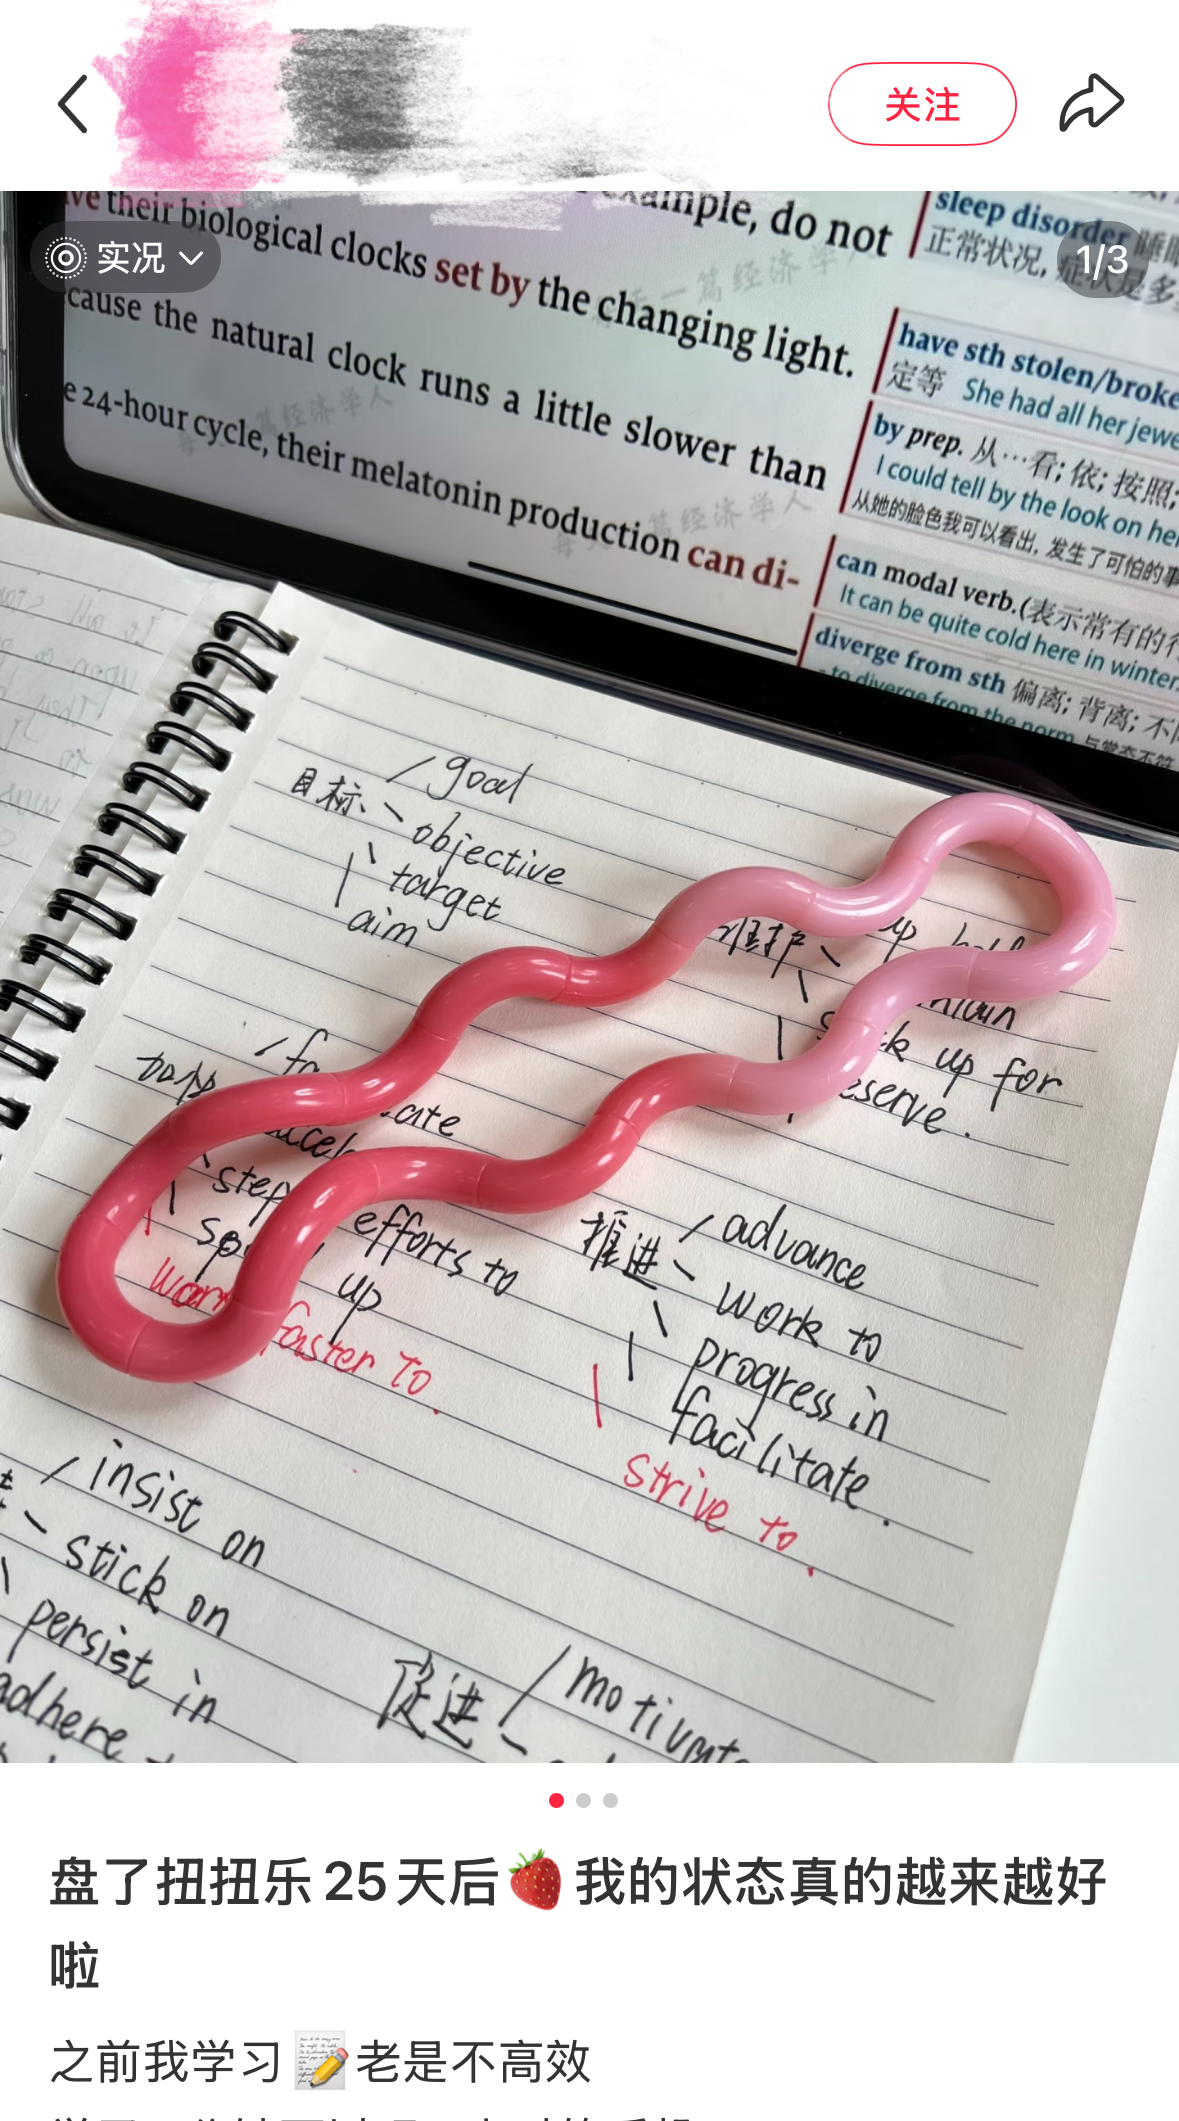 关注
实况
1/3
example, do not
ve their biological clocks set by the changing light.
cause the natural clock runs a little slower than
e 24-hour cycle, their melatonin production can di-
sleep disorder
正常状况,
have sth stolen/broke
定等 She had all her jewe
by prep. 从…看; 依; 按照;
I could tell by the look on he
从她的脸色我可以看出, 发生了可怕的事
can modal verb.(表示常有的行
It can be quite cold here in winter
diverge from sth 偏离; 背离; 不
to diverge from the norm 与常态不符
目标 goal
objective
target
aim
维护 up
stick up for
加快
accel
step efforts to
up
work faster to.
推进 advance
work to
progress in
facilitate.
strive to.
insist on
stick on
persist in
adhere
促进 motivate
盘了扭扭乐25天后🍓我的状态真的越来越好
啦
之前我学习📝老是不高效